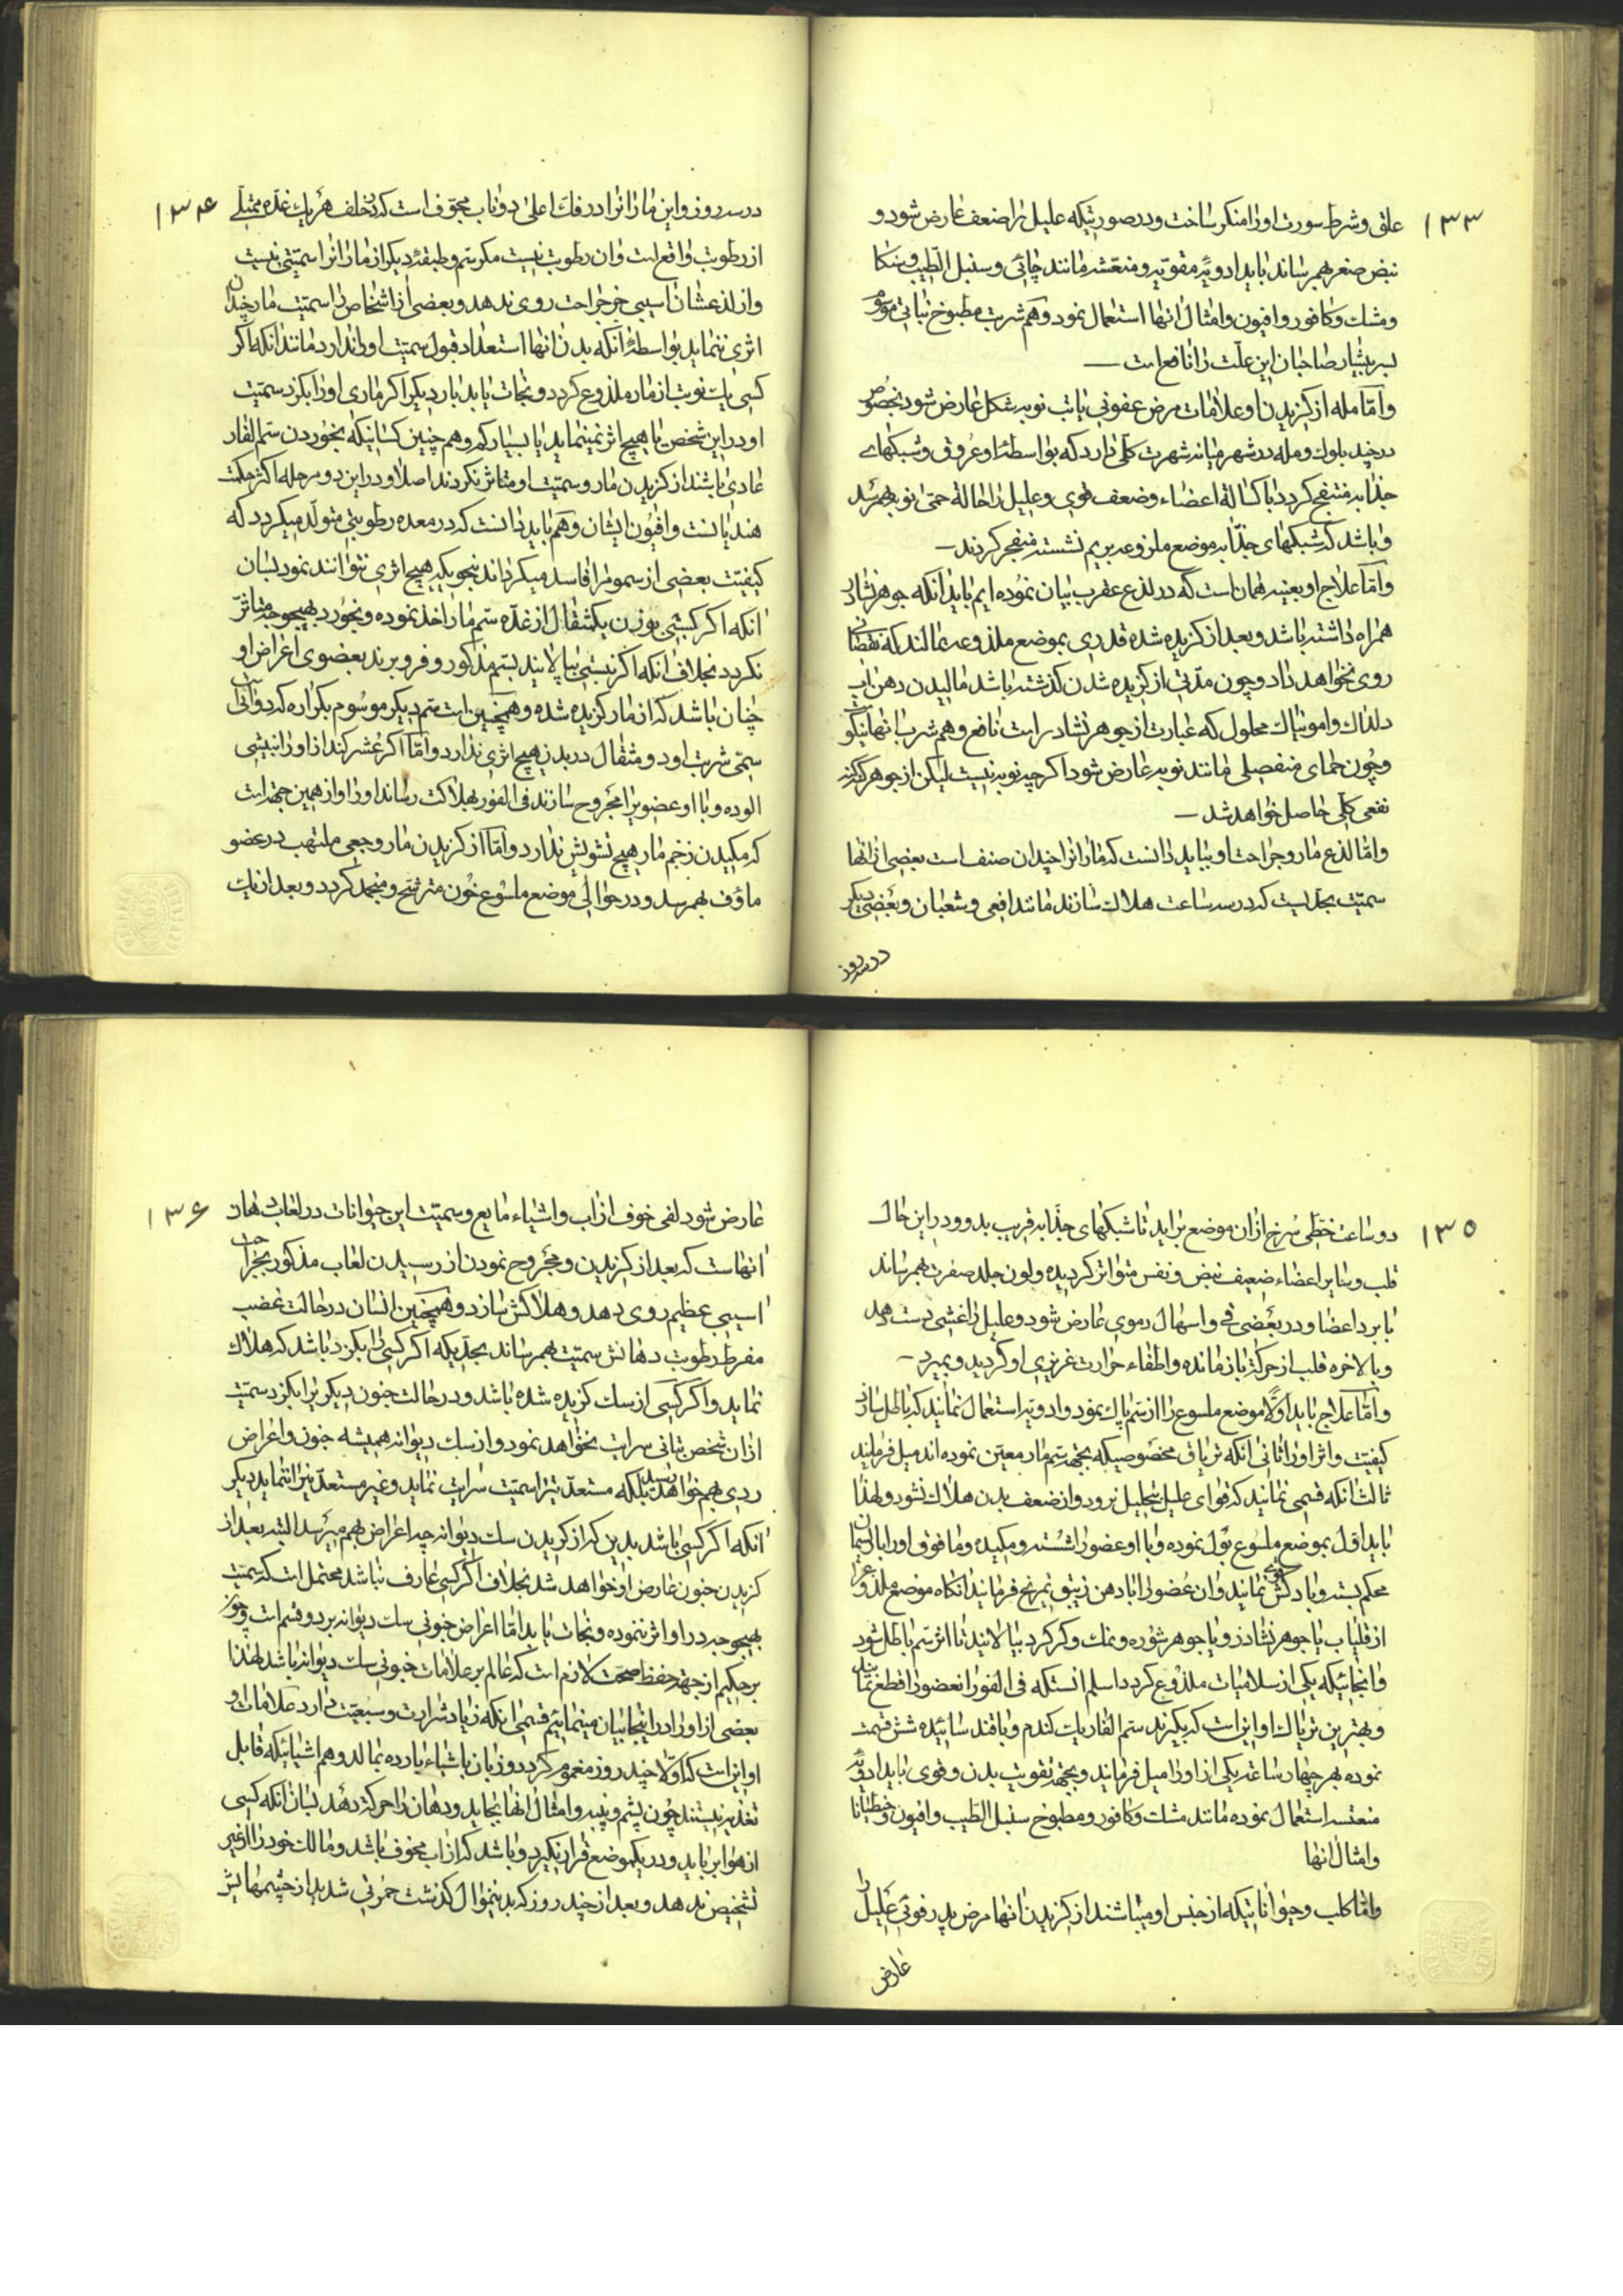 ۱۳۳
علق و شرط سورت او را منکر ساخت و در صورتیکه علیل را ضعف عارض شود و
نبض صغر بهم رساند باید ادویهٔ مقویه و منعشه مانند چائی و سنبل الطیب و
و مشک و کافور و افیون و امثال انها استعمال نمود و هم شربت مطبوخ نباتی موسوم
بسربشیار صاحبان این علت را نافع است
و امّا مله از کزیدن او علامات مرض عفونی یا تب نوبه شکل عارض شود بخصوص
در چند بلوک و مله در شهر میانه شهرت کلی دارد که بواسطهٔ او عروق و شبکهای
جذابه منتفج کردد با کسالة اعضاء و ضعف قوی و علیل را حالة حمی نوبه بهم رسد
و باشد که شبکهای جذابه موضع ملذوعه بریم نشسته منفجر کردند
و امّا علاج او بعینه همان است که در لذع عقرب بیان نموده ایم باید انکه جوهر نشادر
همراه داشته باشد و بعد از کزیده شده قدری بموضع ملذوعه بمالند که نقصان
روی نخواهد داد و چون مدّتی از کزیده شدن کذشته باشد مالیدن دهن اب
دلداک و امونیاک محلول که عبارت از جوهر نشادر است نافع و هم شرب انها نیکو
و چون حمای منفصلی مانند نوبه عارض شود اکرچه نوبه نیست لیکن از جوهر کنه کنه
نفعی کلی حاصل خواهد شد
و امّا لذع مار و جراحت او بباید دانست که ماران را چندان صنف است بعضی از انها
سمیّت بحدیست که در سه ساعت هلاک سازند مانند افعی و ثعبان و بعضی دیکر
در سه روز
۱۳۴
در سه روز و این ماران را در فک اعلی دو ناب مجوّف است که بخلف هر یک غدّه ممتلی
از رطوبت واقع است و ان رطوبت نیست مکر سم و طبقهٔ دیکر از ماران را سمیّتی نیست
و از لذعشان اسیبی جز جراحت روی ندهد و بعضی از اشخاص را سمیّت مار چندان
اثری ننماید بواسطهٔ انکه بدن انها استعداد قبول سمیّت او را ندارد مانند انکه اکر
کسی یک نوبت از مار ملذوع کردد و نجات یابد بار دیکر اکر ماری او را بکزد سمیّت
او در این شخص یا هیچ اثر نمینماید یا بسیار کم و هم چنین کسانیکه بخوردن سم الفار
عادی باشند از کزیدن مار و سمیّت او متاثر نکردند اصلا و در این دو مرحله اکثر حکمت
هندیانست و افیون ایشان و هم باید دانست که در معده رطوبتی متولد میکردد که
کیفیّت بعضی از سموم را فاسد میکرداند بنحویکه هیچ اثری نتوانند نمود بسان
انکه اکر کسی بوزن یکمثقال از غدّه سمّ مار اخذ نموده و بخورد بهیچوجه متاثر
نکردد بخلاف انکه اکر نیشی بیالایند بسم مذکور و فرو برند بعضوی اعراض او
چنان باشد که از مار کزیده شده و همچنین است سم دیکر موسوم بکراره که دوائی
سمّی شربت او دو مثقال در بدن هیچ اثری ندارد و امّا اکر عشر کندم از او را بنیشی
الوده و با او عضویرا مجروح سازند فی الفور بهلاکت رساند او را و از همین جهت است
که مکیدن زخم مار هیچ تشویش ندارد و امّا از کزیدن مار وجعی ملتهب در عضو
ماؤف بهم رسد و در حوالی موضع ملسوع خون مترشح و منجمد کردد و بعد از یک
۱۳۵
دو ساعت خطی سرخ از ان موضع براید تا شبکهای جذابه قریب بدو و در این حال
قلب و سایر اعضاء ضعیف نبض و نفس متواتر کردیده و لون جلد صفرت بهم رساند
با برد اعضا و در بعضی قی و اسهال دموی عارض شود و علیل را غشی دست دهد
و بالاخره قلب از حرکة باز مانده و اطفاء حرارت غریزی او کردید و بمیرد
و امّا علاج باید اوّلا موضع ملسوع را از سم پاک نمود و ادویه استعمال نمایند که باطل سازد
کیفیّت و اثر او را ثانی انکه تریاق مخصوصیکه بجهة سمّ مار معیّن نموده اند میل فرمایند
ثالث انکه قسمی نمایند که قوای علیل بتحلیل نرود و از ضعف بدن هلاک نشود و لهذا
باید اوّل بموضع ملسوع بول نموده و یا او عضو را شسته و مکیده و ما فوق او را با ریسمان
محکم بسته و بادکش نمایند و ان عضو را با دهن زیتون تمریخ فرمایند انکاه موضع ملذوع را
از قلیاب یا جوهر نشادر و یا جوهر شوره و نمک و کرکرد بیالایند تا اثر سم باطل شود
و انجائیکه یکی از سلامیات ملذوع کردد اسلم انستکه فی الفور انعضو را قطع نمایند
و بهترین تریاک او اینست که بکیرند سم الفار یک کندم و با قند سائیده شش قسمت
نموده بهر چهار ساعت یکی از او را میل فرمایند و بجهة تقویت بدن و قوی باید ادویهٔ
منعشه استعمال نموده مانند مشک و کافور و مطبوخ سنبل الطیب و افیون و خطیانا
و امثال انها
و امّا کلب و حیواناتیکه از جنس او میباشند از کزیدن انها مرض یدرفوبی علیل را
عارض
۱۳۶
عارض شود لفی خوف از اب و اشیاء مایع و سمیّت این حیوانات در لعاب دهان
انهاست که بعد از کزیدن و مجروح نمودن از رسیدن لعاب مذکور بجراحت
اسیبی عظیم روی دهد و هلاکش سازد و همچنین انسان در حالت غضب
مفرط رطوبت دهانش سمیّت بهم رساند بحدیکه اکر کسی را بکزد باشد که هلاک
نماید و اکر کسی از سک کزیده شده باشد و در حالت جنون دیکریرا بکزد سمیّت
از ان شخص بثانی سرایت نخواهد نمود و از سک دیوانه همیشه جنون و اعراض
ردی بهم نخواهد رسید بلکه مستعدّین را سمیّت سرایت نماید و غیر مستعدّین را ننماید دیکر
انکه اکر کسی باشد بدین که از کزیدن سک دیوانه چه اعراض بهم میرسد البته بعد از
کزیدن جنون عارض او خواهد شد بخلاف اکر کسی عارف نباشد محتمل است که سمیّت
بهیچوجه در او اثر ننموده و نجات یابد امّا اعراض جنونی سک دیوانه بر دو قسم است و چون
بر حکیم از جهة حفظ صحّت لازم است که عالم بر علامات جنونی سک دیوانه باشد لهذا
بعضی از او را در اینجا بیان مینمائیم قسمی اینکه زیاد شرارت و سبعیّت دارد علامات او
او اینست که اوّلا چند روز مغموم کردد و زبان باشیاء بارده بمالد و هم اشیائیکه قابل
تغذیه نیستند چون پشم و پنبه و امثال انها بخاید و دهان را حرکة دهد بسان انکه کسی
از هوا برباید و در یکموضع قرار نکیرد و باشد که از اب مخوف باشد و مالک خود را از غیر
تشخیص ندهد و بعد از چند روز که بدینموال کذشت حمرتی شدید از چشمهایش